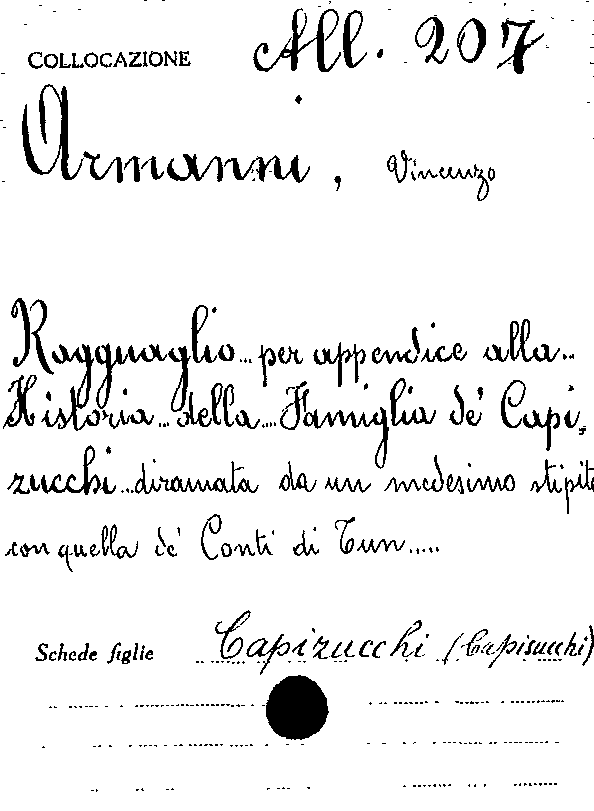 COLLOCAZIONE All. 207
Armanni, Vincenzo
Ragguaglio... per appendice alla..
Historia... della... Famiglia de' Capi,
zucchi... diramata da un medesimo stipite
con quella de' Conti di Tun.....
Schede figlie Capizucchi (Capisucchi)